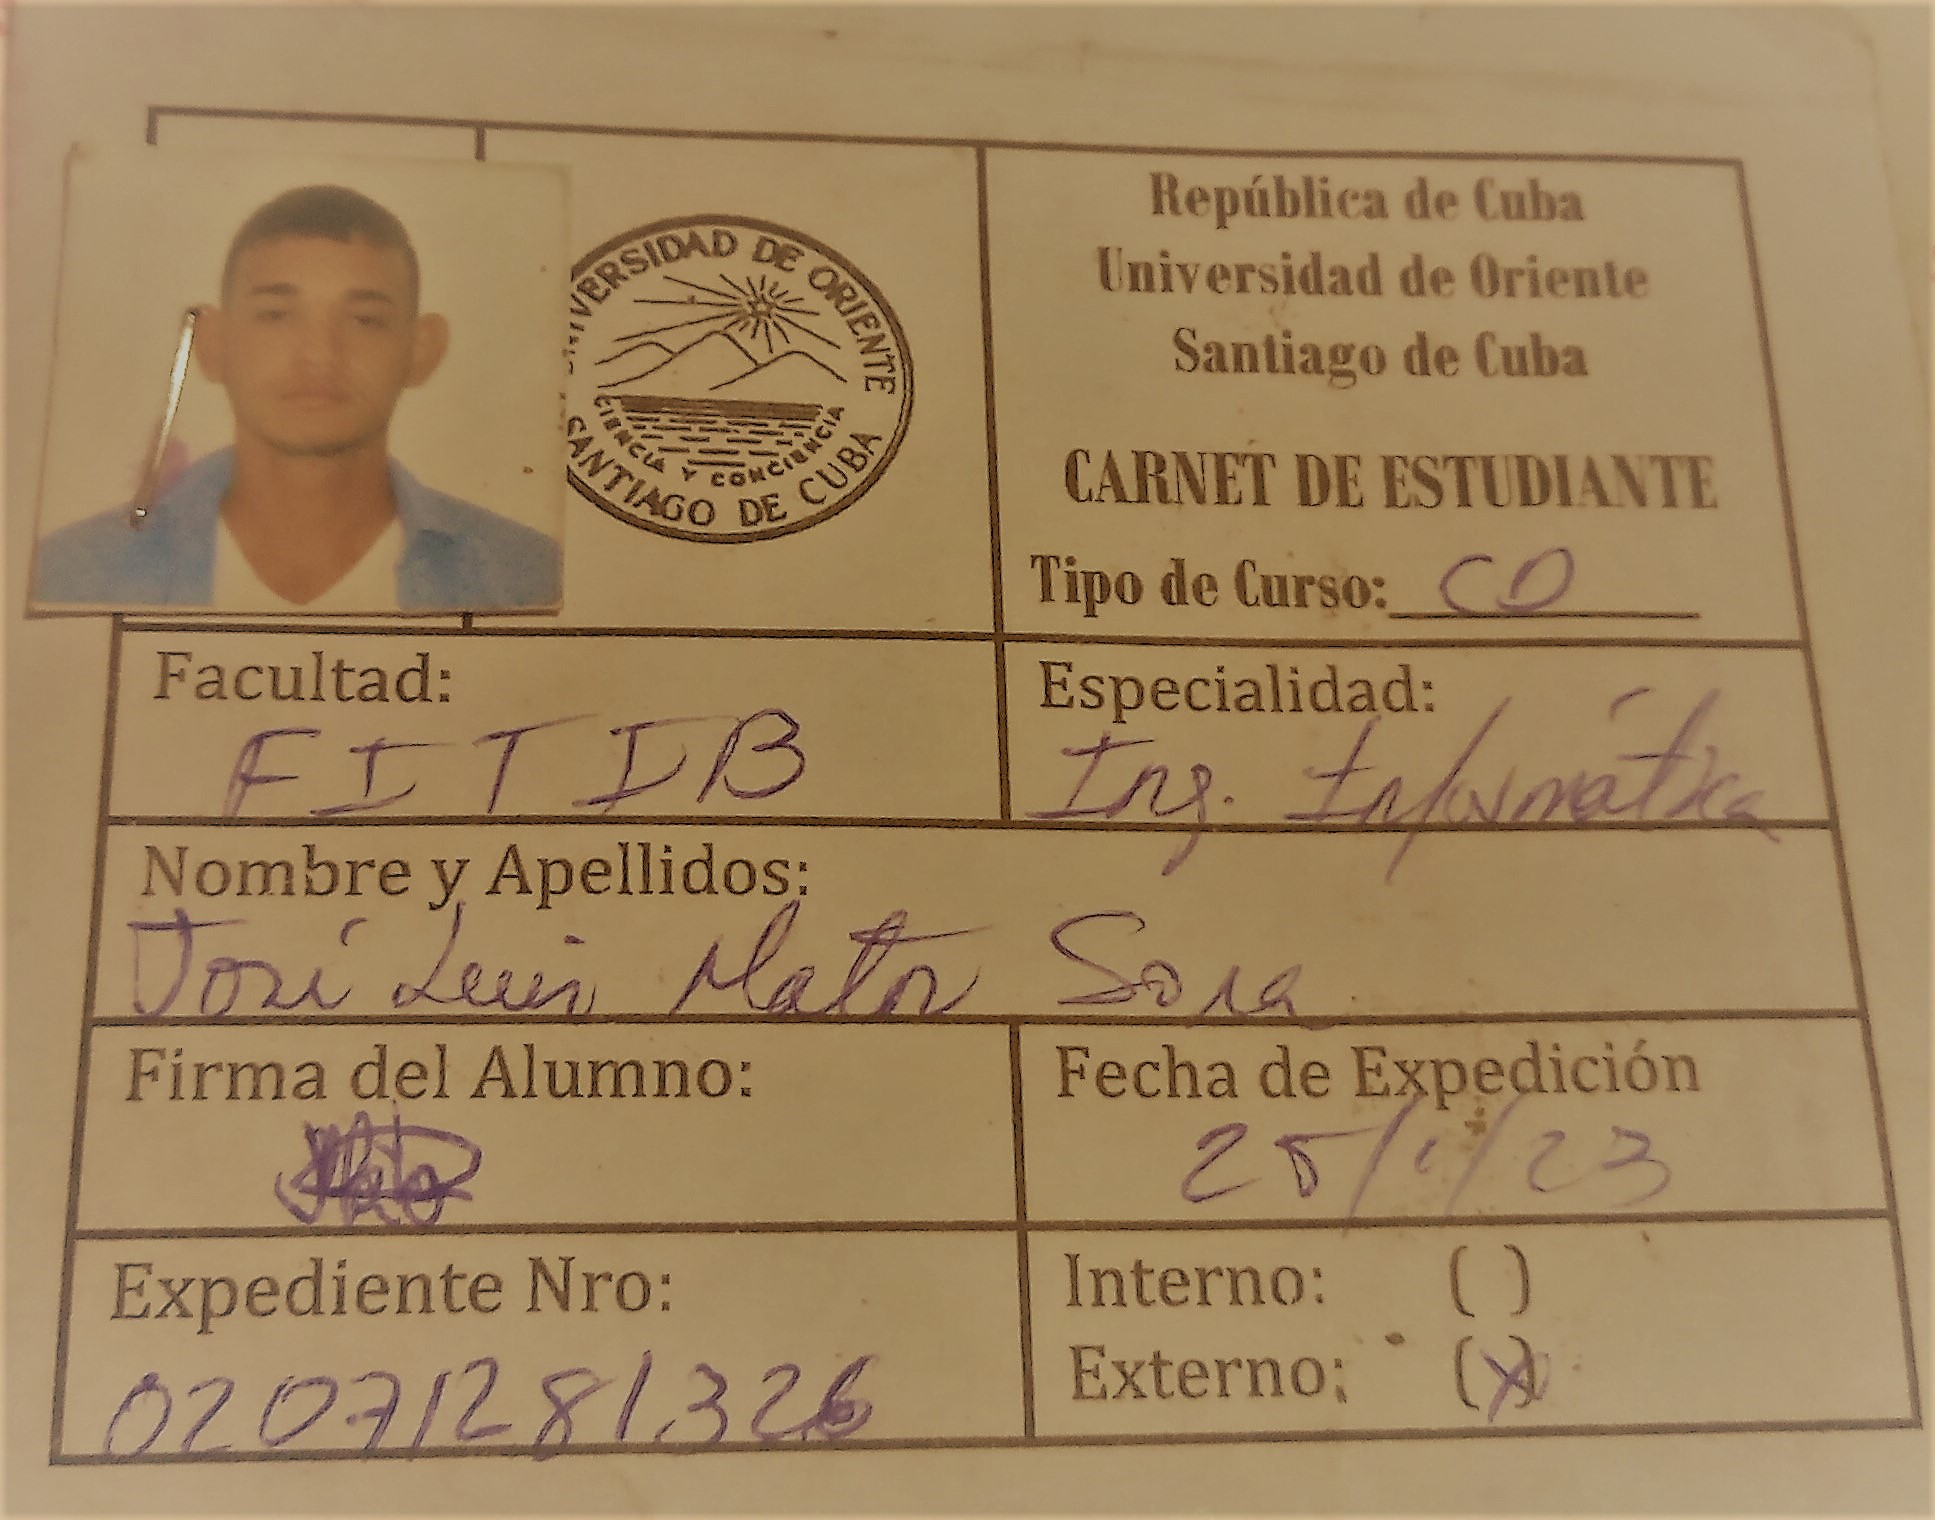 UNIVERSIDAD DE ORIENTE
CIENCIA Y CONCIENCIA
SANTIAGO DE CUBA
República de Cuba
Universidad de Oriente
Santiago de Cuba
CARNET DE ESTUDIANTE
Tipo de Curso: CD
Facultad:
FITIB
Especialidad:
Ing. Informática
Nombre y Apellidos:
José Luis Matos Sosa
Firma del Alumno:
Fecha de Expedición
25/1/23
Expediente Nro:
02071281326
Interno: ( )
Externo: (X)